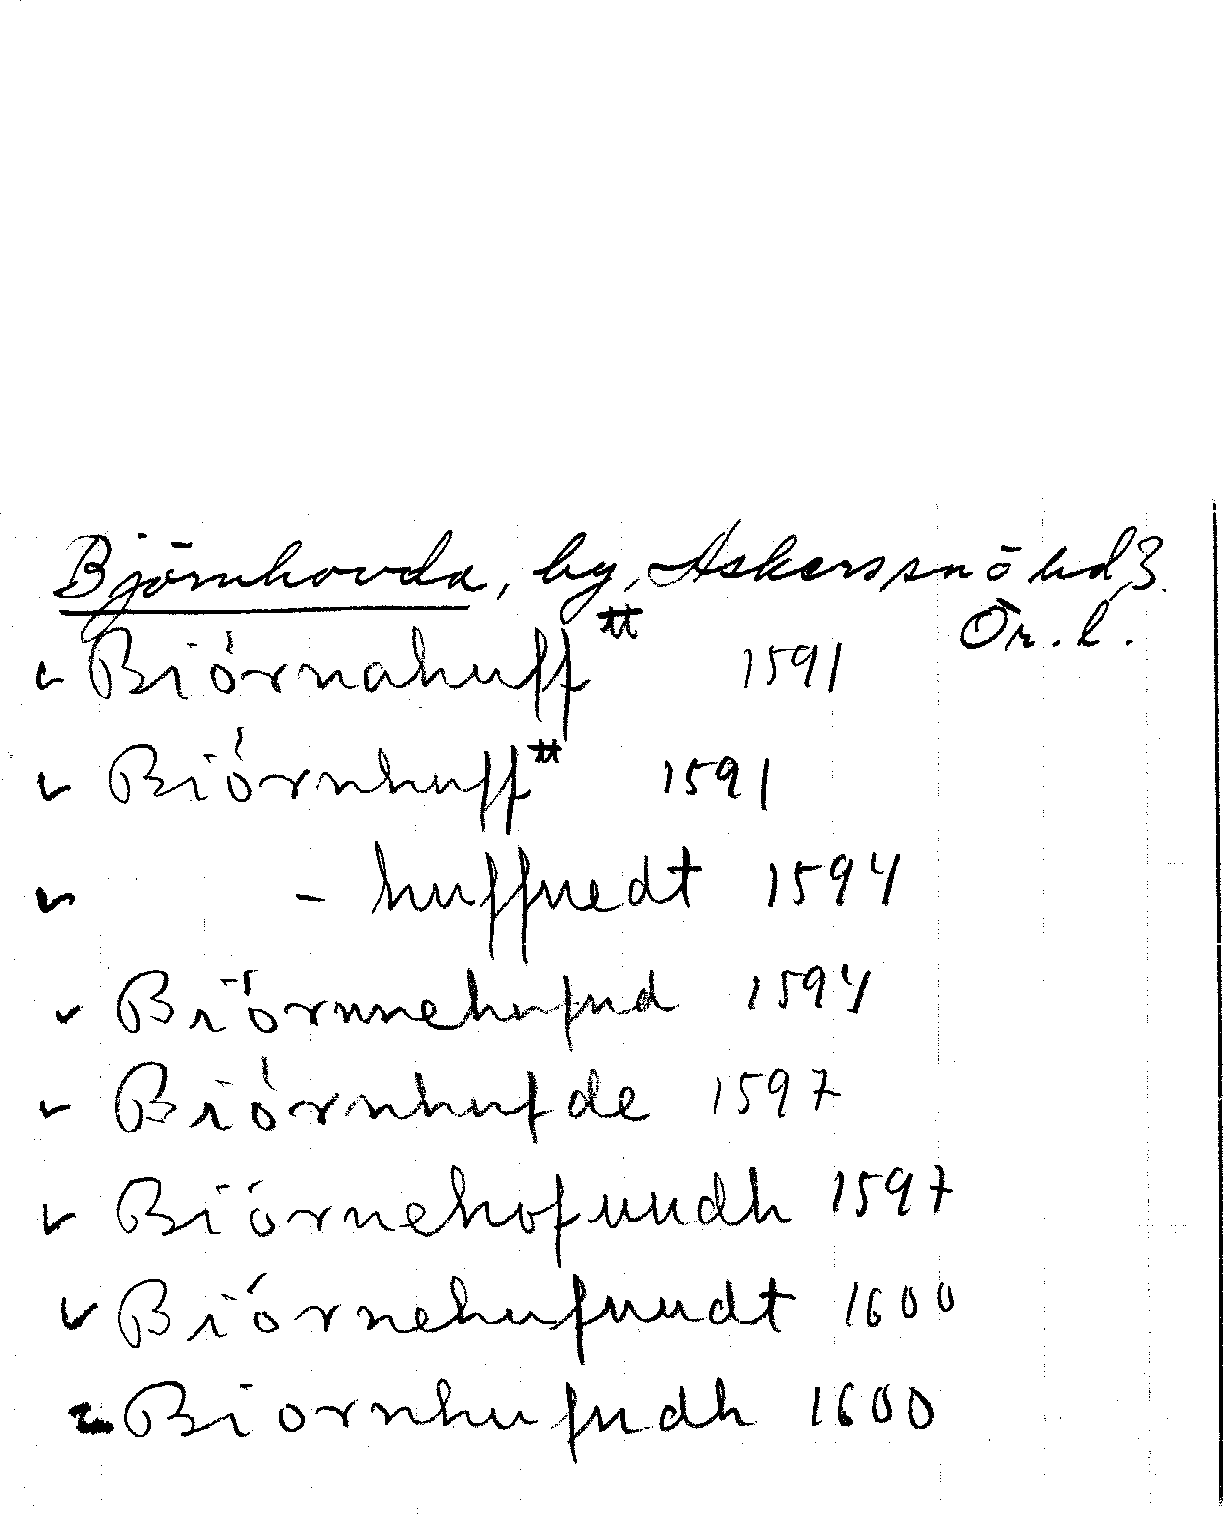 Björnhovda, by, Askers sn ö hd?
Ör. l.
Biórnahuff¤ 1591
Biórnhuff¤ 1591
- huffuedt 1594
Biörnnehufud 1594
Biórnhufde 1597
Biörnehofuudh 1597
Biörnehufuudt 1600
Biornhufudh 1600